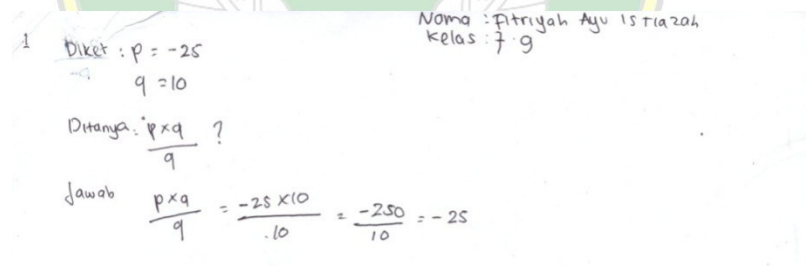 Nama : Fitriyah Ayu Istiazah
Kelas : 7.9
1 Diket : p = -25
q = 10
Ditanya : p×q / q ?
Jawab p×q / q = -25 ×10 / 10 = -250 / 10 = -25